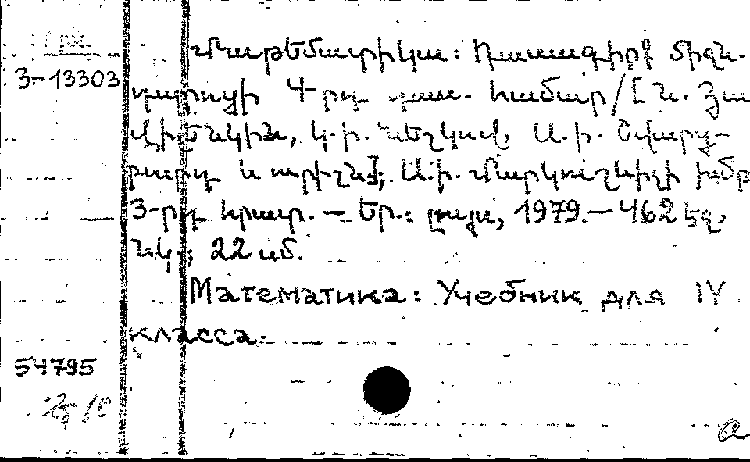 3-13303
Մաթեմատիկա: Դասագիրք միջն.
դպրոցի 4-րդ դաս. համար/[Ն. Յա
Վիլենկին, Կ.Ի. Նեշկով, Ս.Ի. Շվարց-
բուրդ և ուրիշն.]; Ա.Ի. Մարկուշևիչի խմբ
3-րդ հրատ. – Եր.: Լույս, 1979. – 462 էջ,
նկ.; 22 սմ.
Математика: Учебник для IV
класса.
54795
a